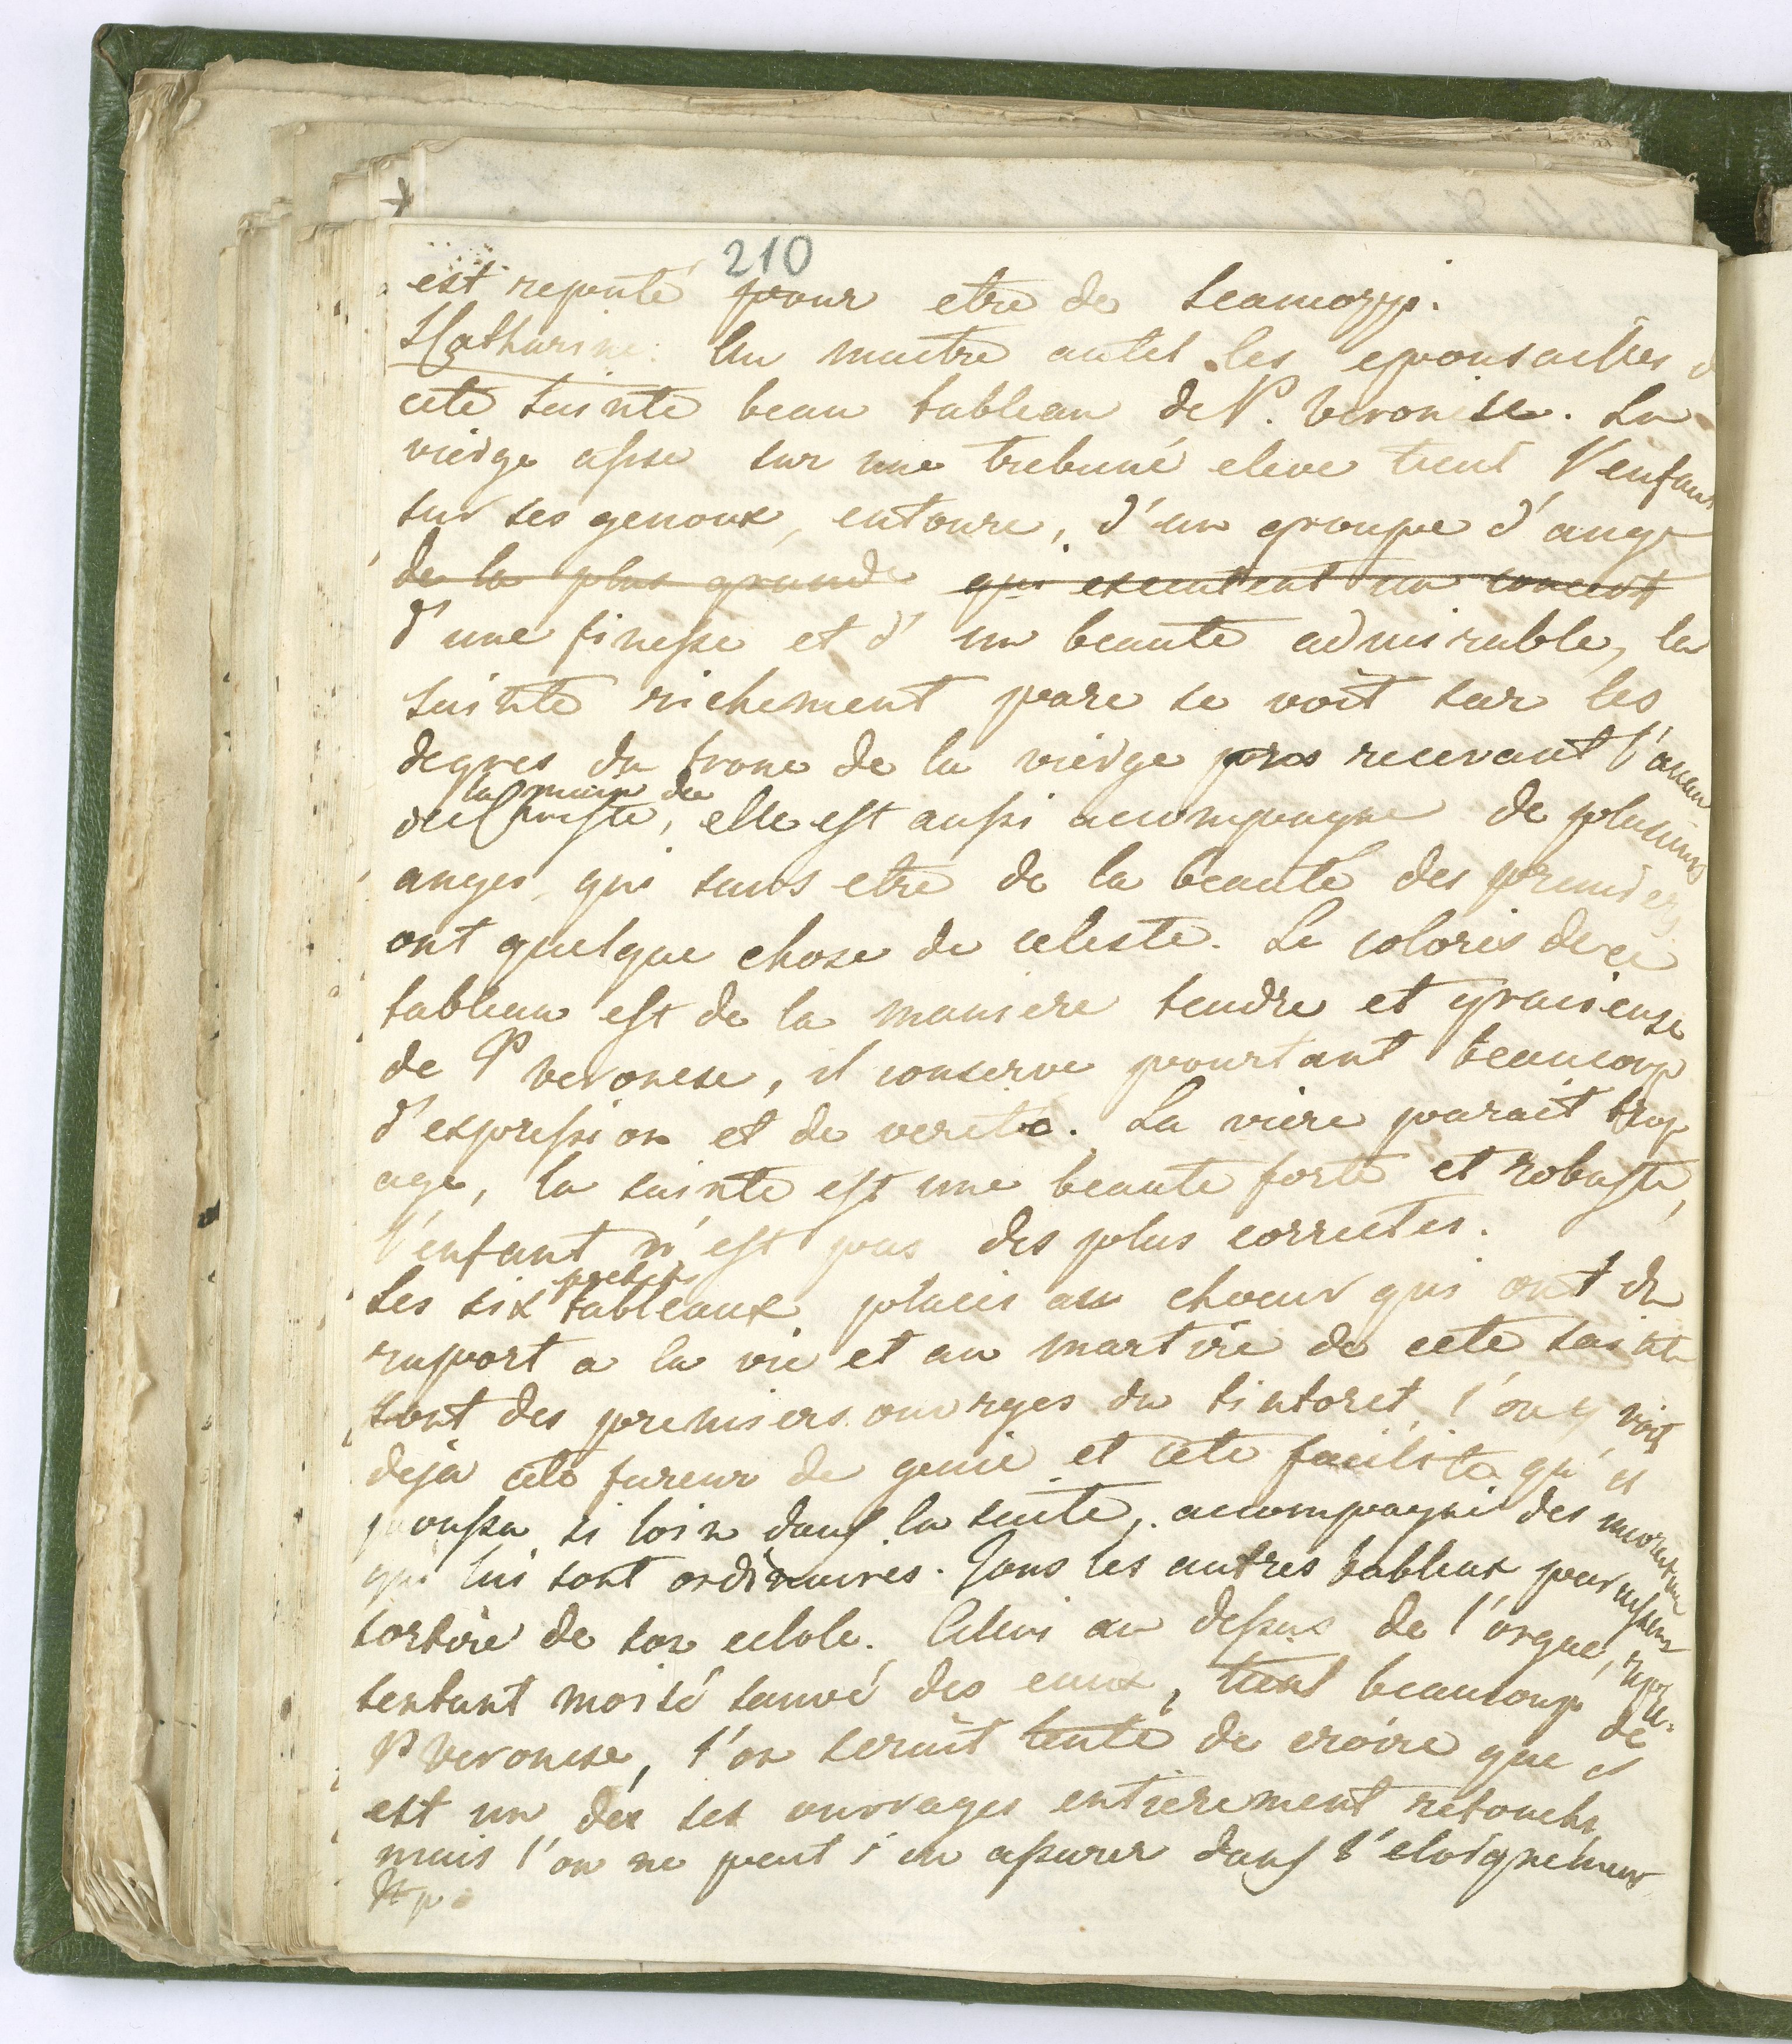 210
est reputé pour etre de Scamozzi.
S Catharine. Au maitre autel les epousailles d
cete sainte beau tableau de P. Veronese. La
vierge assise sur une tribune eleve tient l'enfant
sur ses genoux, entoure, d'un groupe d'ange
de la plus grande qui executent un concert
d'une finesse et d' un beaute admirable, la
sainte richement pare se voit sur les
degres du trone de la vierge pres recevant l'aneau
la main de
del Christe, elle est aussi acompagne de plusieurs
anges, qui sans etre de la beauté des premiers
ont quelque chose de celeste. Le coloris de ce
tableau est de la maniere tendre et graieuse
de P veronese, il conserve pourtant beaucoup
d'expression et de verité. La viere parait trop
age, la sainte est une beaute forte et robuste,
l'enfant n'est pas des plus correctes.
petits
Les six tableaux placés au choeur qui ont du
raport a la vie et au martire de cete sainte
sont des premiers ouvrges du tintoret, l'on y voit
deja cete fureur de genie et cete facilite qu'il
poussa si loin dans la suite, accompagné des incorrections
qui lui sont ordinaires. Tous les autres tableax paraissent
sortire de son ecole. Celui au dessus de l'orgue, repre-
sentant moisé sauvé des eaux, tient beaucoup de
P veronese, l'on serait tenté de croire que c
est un des ses ouvrages entierement retouche,
mais l'on ne peut s'en assurer dans l'eloignement